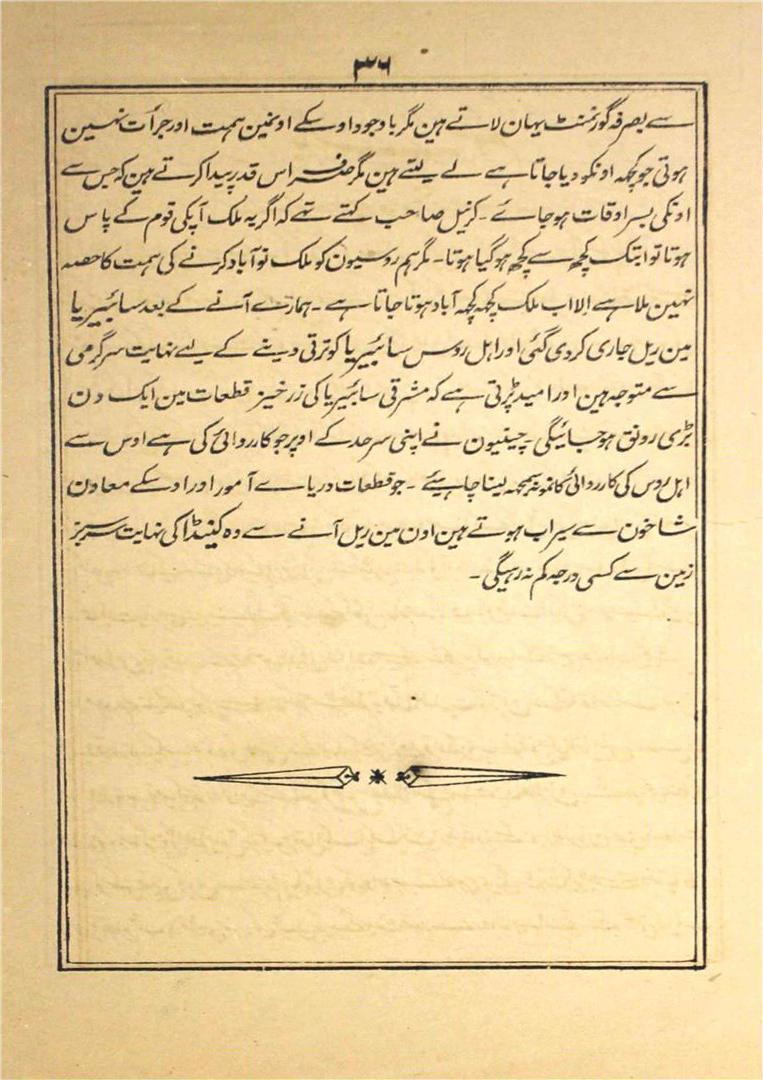 ۳۳۶
سے بصرفہ گورنمنٹ یہان لاتے ہین مگر باوجود اوسکے اونمین ہمت اور جرأت نہین
ہوتی جو کچھہ اونکو دیا جاتا ہے لے لیتے ہین مگر صرف اس قدر پیدا کرتے ہین کہ جس سے
اونکی بسر اوقات ہو جائے ۔ کرنیل صاحب کہتے تھے کہ اگر یہ ملک آپکی قوم کے پاس
ہوتا تو ابتک کچھ سے کچھ ہو گیا ہوتا ۔ مگر ہم روسیون کو ملک نو آباد کرنے کی ہمت کا حصہ
نہین ملا ہے الا اب ملک کچھہ کچھہ آباد ہوتا جاتا ہے ۔ ہمارے آنے کے بعد سائبیریا
مین ریل جاری کر دی گئی اور اہل روس سائبیریا کو ترقی دینے کے لیے نہایت سرگرمی
سے متوجہ ہین اور امید پڑتی ہے کہ مشرقی سائبیریا کی زرخیز قطعات مین ایک دن
بڑی رونق ہو جائیگی ۔ چینیون نے اپنی سرحد کے اوپر جو کارروائی کی ہے اوس سے
اہل روس کی کارروائی کا نمونہ سمجھہ لینا چاہیئے ۔ جو قطعات دریاے آمور اور اوسکے معاون
شاخون سے سیراب ہوتے ہین اون مین ریل آنے سے وہ کینڈا کی نہایت سرسبز
زمین سے کسی درجہ کم نہ رہیگی ۔